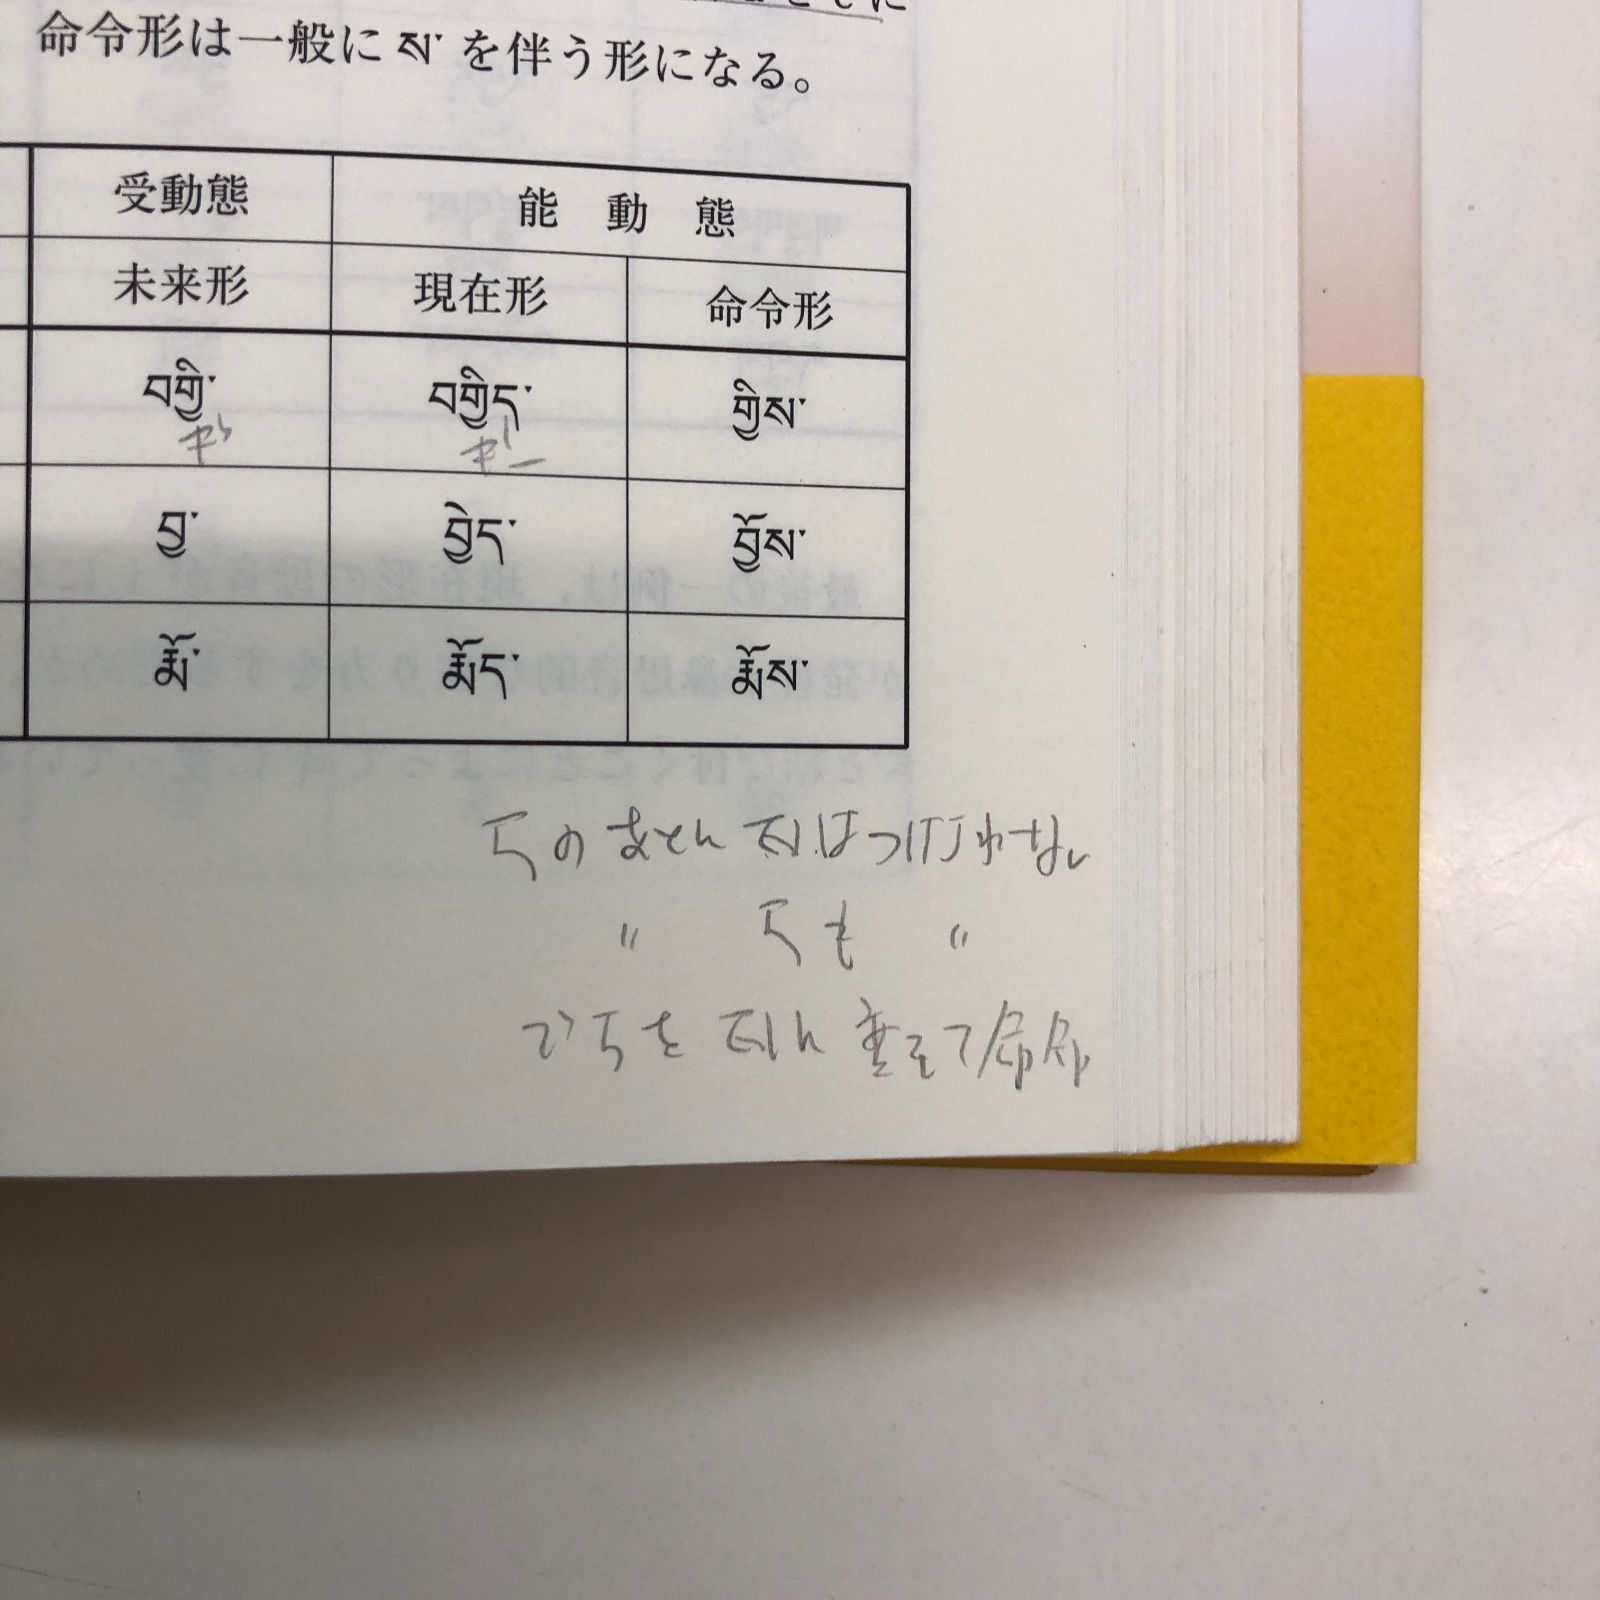 命令形は一般に ས་ を伴う形になる。
受動態 能動態
未来形 現在形 命令形
བགྱི་ བགྱིད་ གྱིས་
ギ ギー
བྱ་ བྱེད་ བྱོས་
རྨོ་ རྨོད་ རྨོས་
ད のあとに ས はつけられない
〃 ད も 〃
で ད を ས に変えて命令